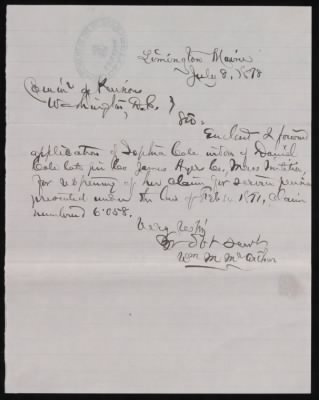 Limington Maine
July 8, 1878
Com'r of Pensions
Washington, D.C. }
Sir:
Enclosed I forward
application of Sophia Cole widow of Daniel
Cole late in Co James Ayers Co. Mass Militia,
for reopening of her claim for service pension
presented under the law of Feb 14, 1871, claim
numbered 6058.
Very Resp'y
Yr Obt Servt
Wm M McArthur